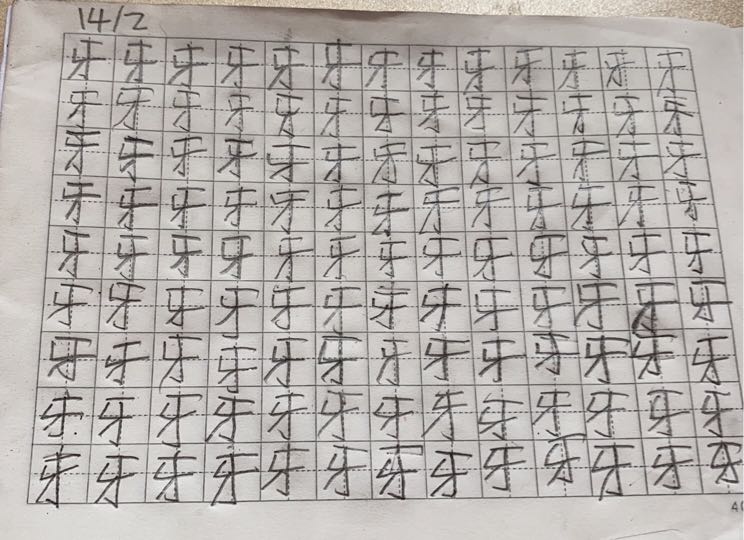 14/2
牙牙牙牙牙牙牙牙牙牙牙牙牙
牙牙牙牙牙牙牙牙牙牙牙牙牙
牙牙牙牙牙牙牙牙牙牙牙牙牙
牙牙牙牙牙牙牙牙牙牙牙牙牙
牙牙牙牙牙牙牙牙牙牙牙牙牙
牙牙牙牙牙牙牙牙牙牙牙牙牙
牙牙牙牙牙牙牙牙牙牙牙牙牙
牙牙牙牙牙牙牙牙牙牙牙牙牙
牙牙牙牙牙牙牙牙牙牙牙牙牙